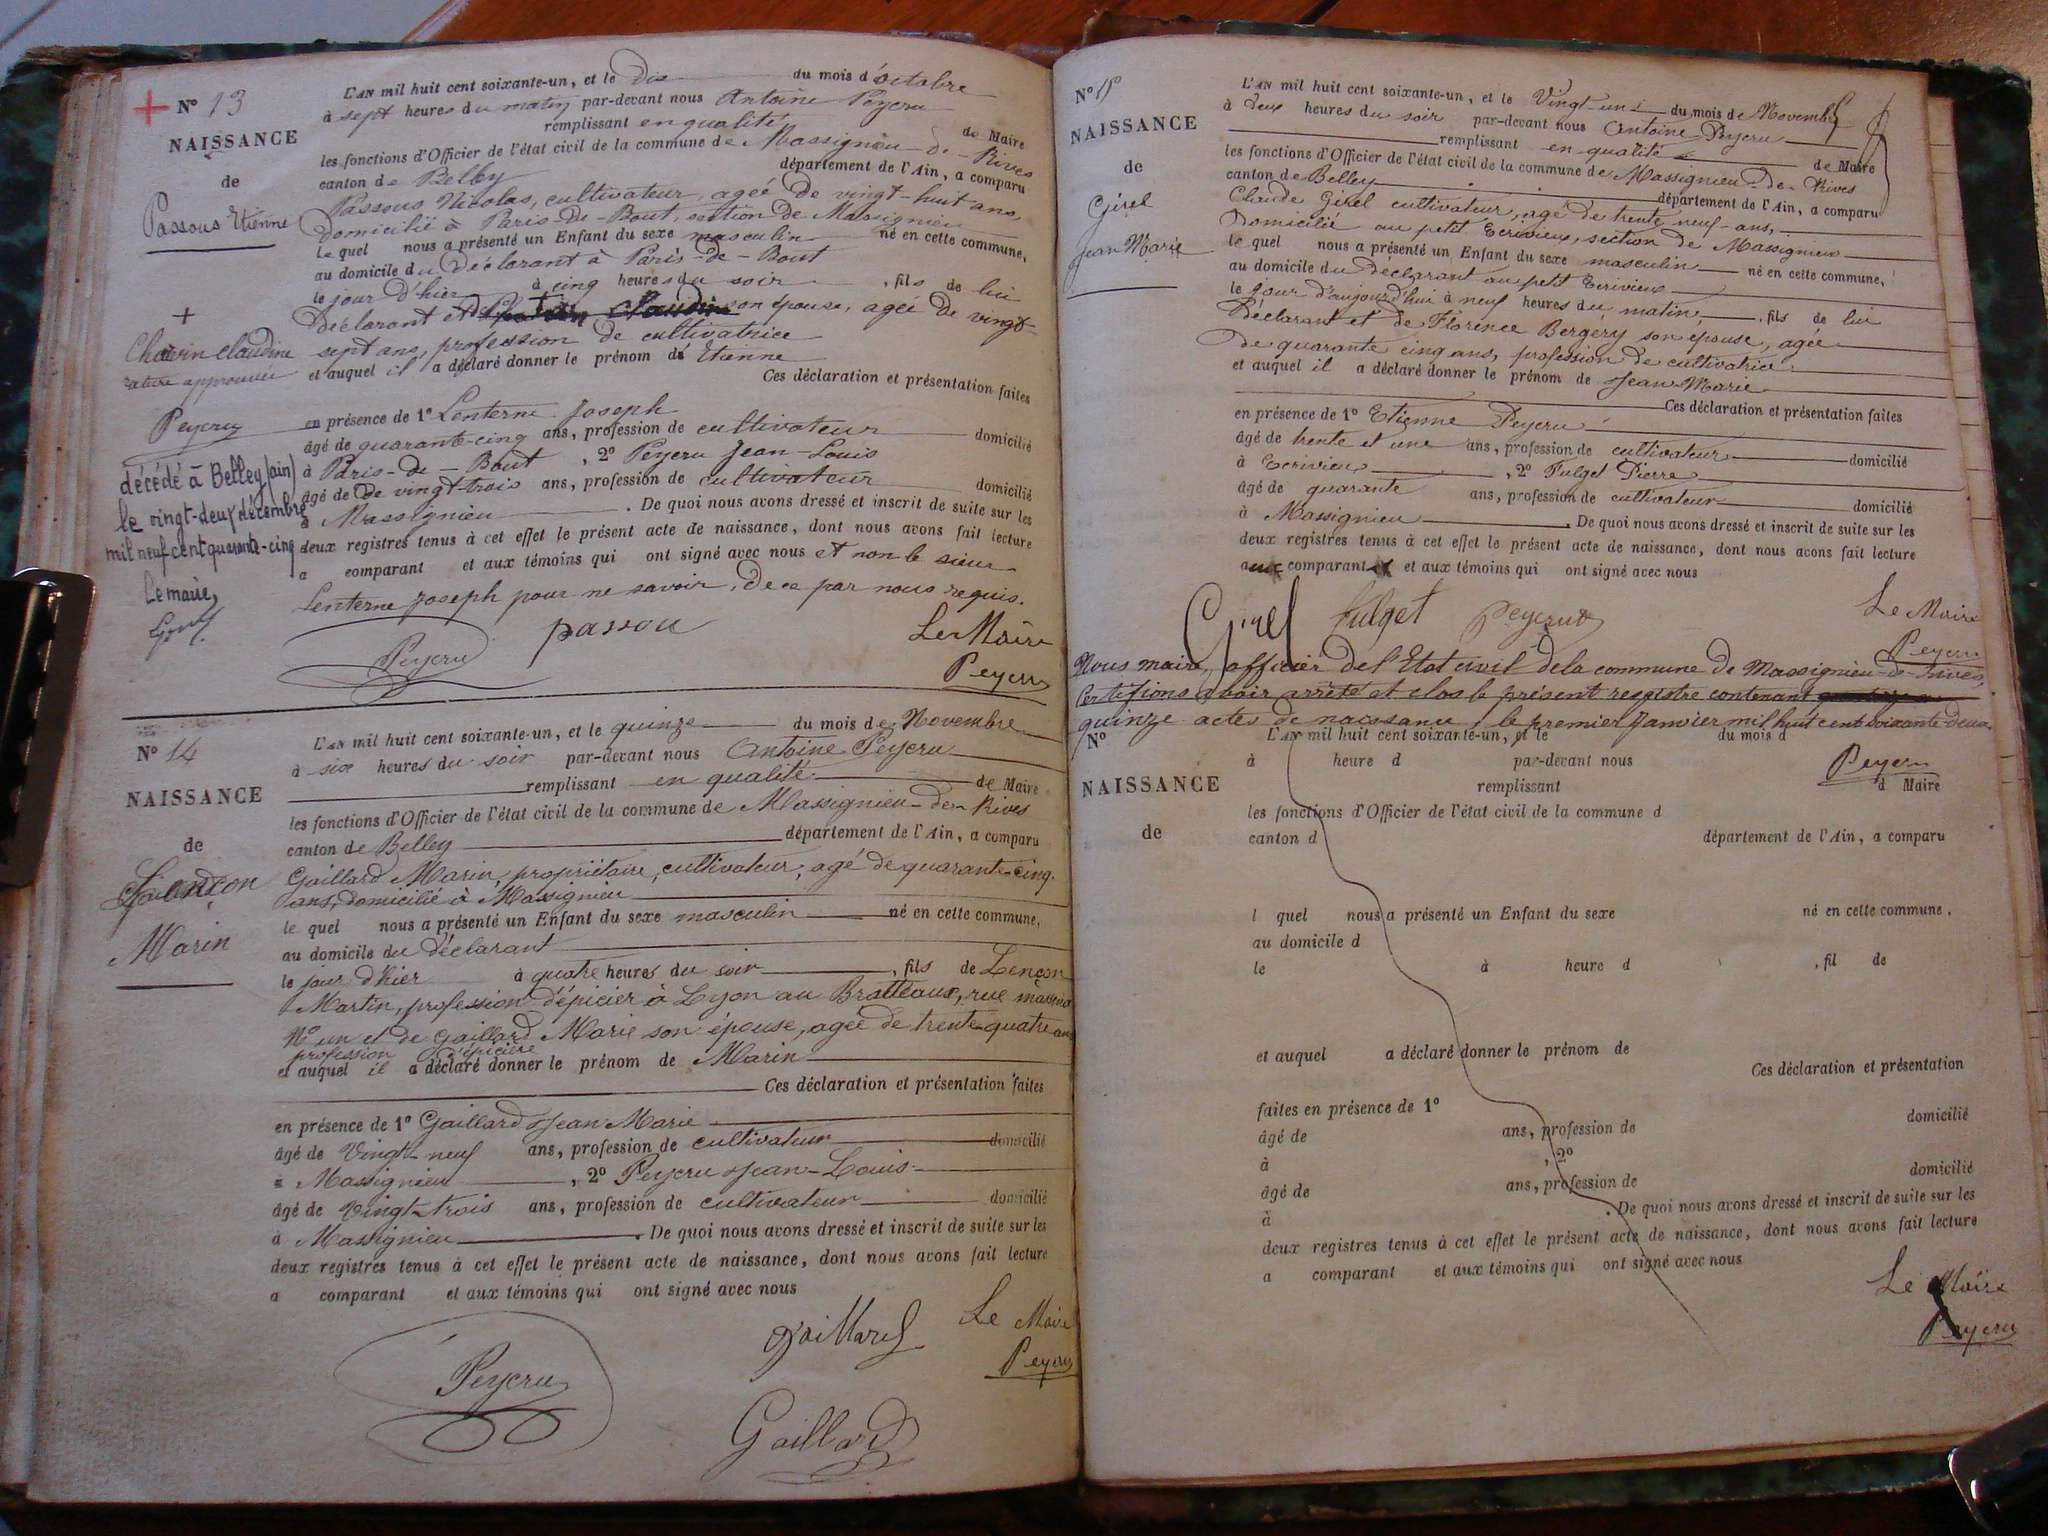 N° 13
NAISSANCE
de
Passous Etienne
+
Chavin Claudine
rature approuvée
Peyeru
décédé à Belley (ain)
le vingt-deux décembre
mil neuf cent quarante-cinq
Le maire,
L'AN mil huit cent soixante-un, et le dix du mois d'octobre
à sept heures du matin par-devant nous Antoine Peyeru
remplissant en qualité de Maire
les fonctions d'Officier de l'état civil de la commune de Massignieu-de-Rives
canton de Belley département de l'Ain, a comparu
Passous Nicolas, cultivateur, agée de vingt-huit ans,
domicilié à Paris-de-Bout, section de Massignieu
le quel nous a présenté un Enfant du sexe masculin né en cette commune,
au domicile du déclarant à Paris-de-Bout
le jour d'hier à cinq heures du soir, fils de lui
déclarant et de Claudine son épouse, agée de vingt-
sept ans, profession de cultivatrice
et auquel il a déclaré donner le prénom de Etienne
Ces déclaration et présentation faites
en présence de 1° Lenterne Joseph
âgé de quarante-cinq ans, profession de cultivateur domicilié
à Paris-de-Bout, 2° Peyeru Jean-Louis
âgé de de vingt-trois ans, profession de cultivateur domicilié
à Massignieu. De quoi nous avons dressé et inscrit de suite sur les
deux registres tenus à cet effet le présent acte de naissance, dont nous avons fait lecture
a comparant et aux témoins qui ont signé avec nous et non le sieur
Lenterne Joseph pour ne savoir, de ce par nous requis.
Peyeru passou Le Maire
Peyeru
N° 14
NAISSANCE
de
Lançon
Marin
L'AN mil huit cent soixante-un, et le quinze du mois de Novembre
à six heures du soir par-devant nous Antoine Peyeru
remplissant en qualité de Maire
les fonctions d'Officier de l'état civil de la commune de Massignieu-de-Rives
canton de Belley département de l'Ain, a comparu
Gaillard Marin, propriétaire, cultivateur, agé de quarante-cinq
ans, domicilié à Massignieu
le quel nous a présenté un Enfant du sexe masculin né en cette commune,
au domicile du déclarant
le jour d'hier à quatre heures du soir, fils de Lençon
Martin, profession d'épicier à Lyon au Bratteaux, rue masséna
N° un et de Gaillard Marie son épouse, agée de trente-quatre ans
profession d'épicière
et auquel il a déclaré donner le prénom de Marin
Ces déclaration et présentation faites
en présence de 1° Gaillard Jean Marie
âgé de Vingt-neuf ans, profession de cultivateur domicilié
à Massignieu, 2° Peyeru Jean-Louis
âgé de Vingt-trois ans, profession de cultivateur domicilié
à Massignieu. De quoi nous avons dressé et inscrit de suite sur les
deux registres tenus à cet effet le présent acte de naissance, dont nous avons fait lecture
a comparant et aux témoins qui ont signé avec nous
Peyeru gaillard Le Maire
Peyeru
Gaillard
N° 15
NAISSANCE
de
Girel
Jean Marie
L'AN mil huit cent soixante-un, et le Vingt-un du mois de Novembre
à deux heures du soir par-devant nous Antoine Peyeru
remplissant en qualité de Maire
les fonctions d'Officier de l'état civil de la commune de Massignieu-de-Rives
canton de Belley département de l'Ain, a comparu
Claude Girel cultivateur, agé de trente neuf ans,
Domicilié au petit Ecrivieux, section de Massignieu
le quel nous a présenté un Enfant du sexe masculin né en cette commune,
au domicile du déclarant au petit Ecrivieux
le jour d'aujourd'hui à neuf heures du matin, fils de lui
Déclarant et de Florence Bergéry son épouse, agée
de quarante cinq ans, profession de cultivatrice
et auquel il a déclaré donner le prénom de Jean-Marie
Ces déclaration et présentation faites
en présence de 1° Etienne Peyeru
âgé de trente et une ans, profession de cultivateur domicilié
à Ecrivieu, 2° Fulget Pierre
âgé de quarante ans, profession de cultivateur domicilié
à Massignieu. De quoi nous avons dressé et inscrit de suite sur les
deux registres tenus à cet effet le présent acte de naissance, dont nous avons fait lecture
comparant et aux témoins qui ont signé avec nous
Girel fulget Peyeru Le Maire
Peyeru
Nous maire, officier de l'Etat civil de la commune de Massignieu-de-Rives,
Certifions aboir arrêté et clos le présent reggistre contenant
quinze actes de naissance, le premier Janvier mil huit cent soixante-deux
Peyeru
N°
NAISSANCE
de
L'AN mil huit cent soixante-un, et le du mois d
à heure d par-devant nous
remplissant d Maire
les fonctions d'Officier de l'état civil de la commune d
canton d département de l'Ain, a comparu
l quel nous a présenté un Enfant du sexe né en cette commune,
au domicile d
le à heure d, fil de
et auquel a déclaré donner le prénom de
Ces déclaration et présentation
faites en présence de 1°
âgé de ans, profession de domicilié
à, 2°
âgé de ans, profession de domicilié
à. De quoi nous avons dressé et inscrit de suite sur les
deux registres tenus à cet effet le présent acte de naissance, dont nous avons fait lecture
a comparant et aux témoins qui ont signé avec nous
Le Maire
Peyeru